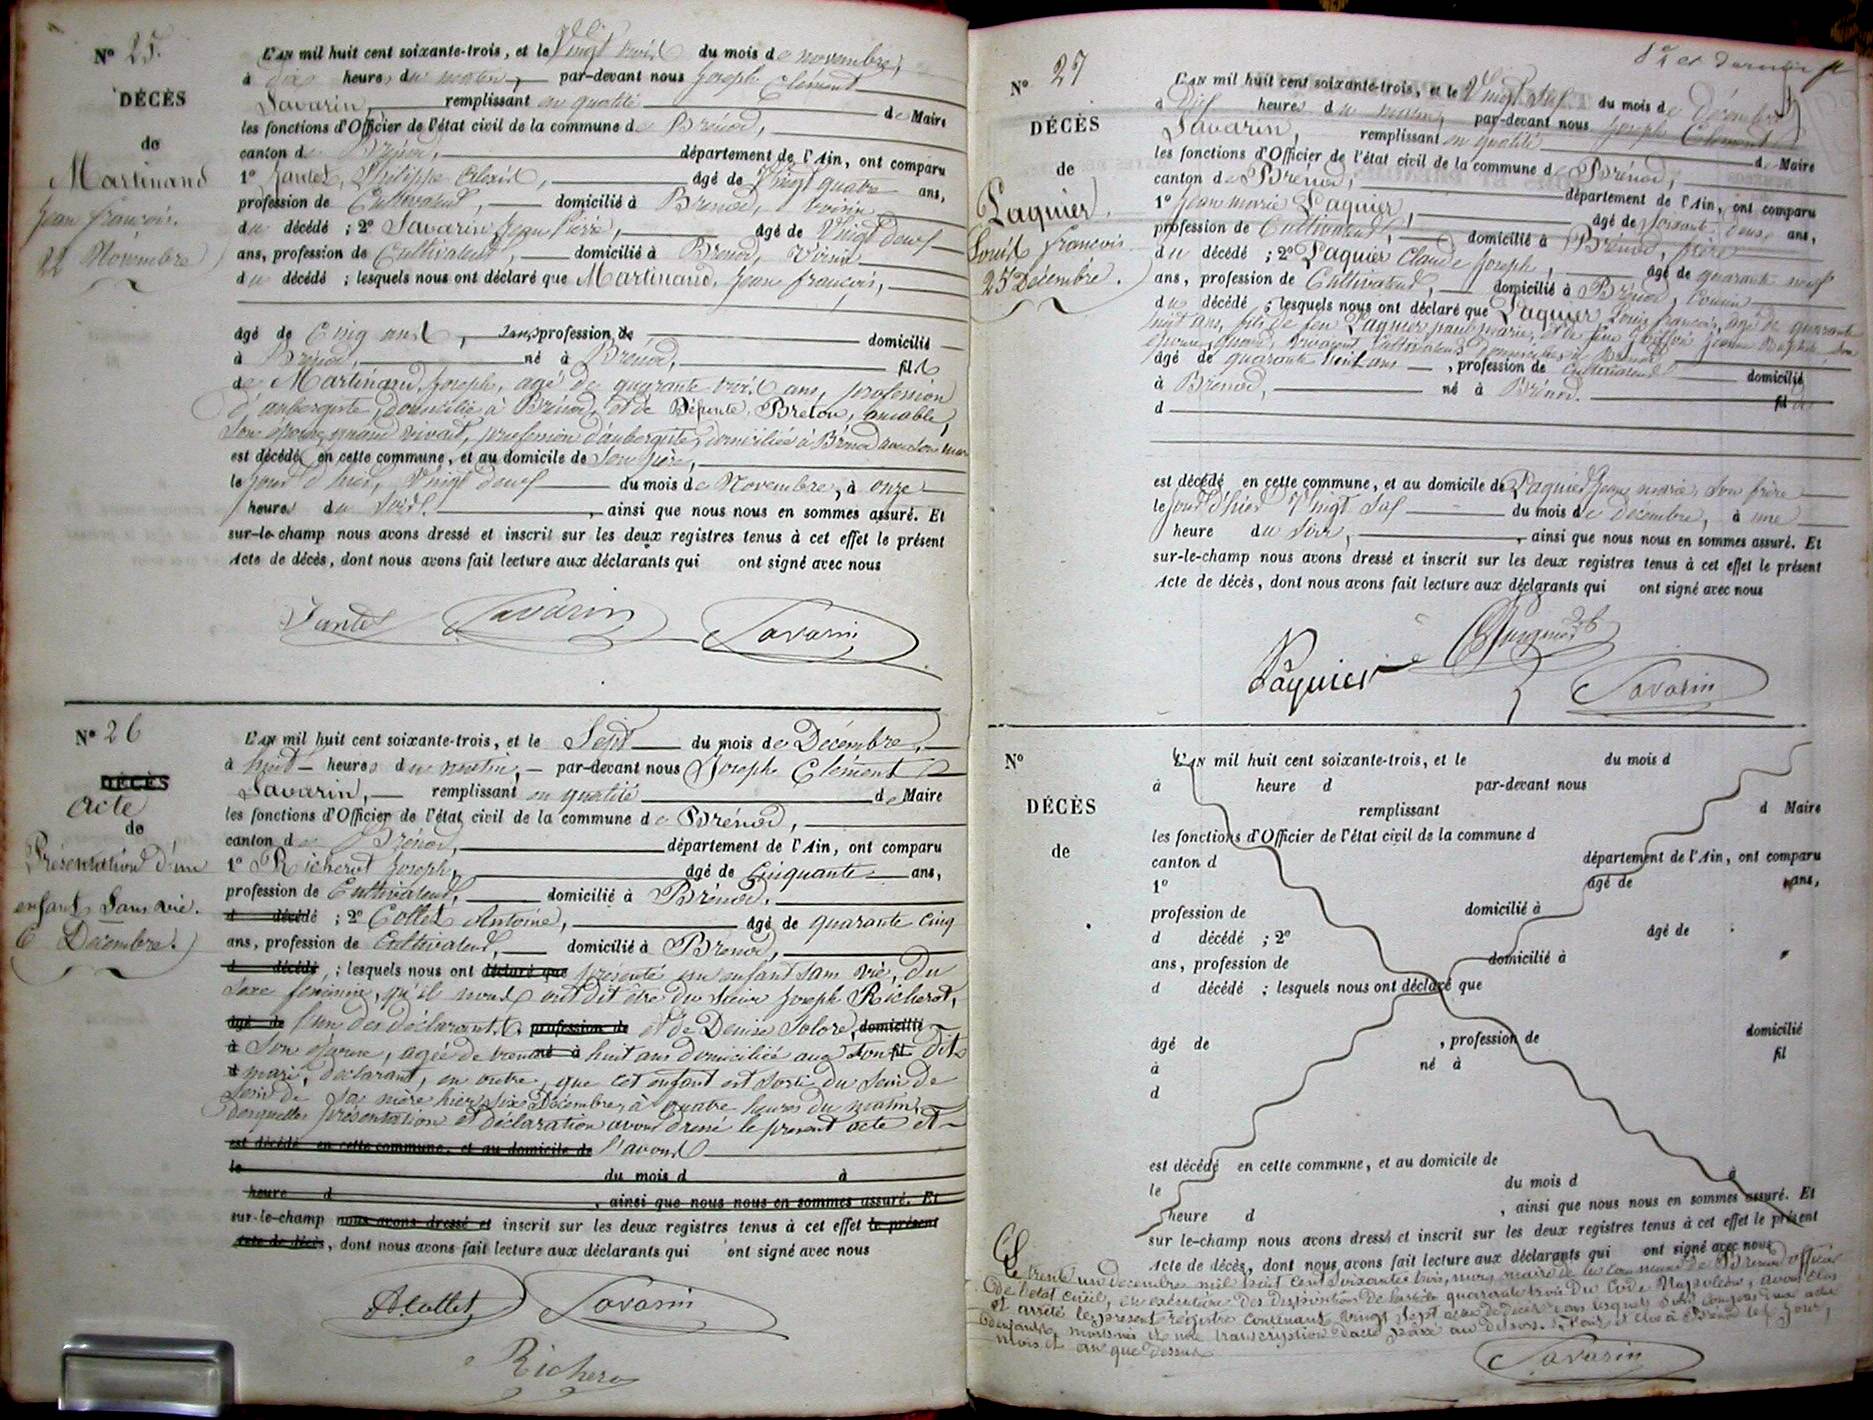 N° 25.
DÉCÈS
de
Martinand
Jean françois.
22 Novembre
L'AN mil huit cent soixante-trois, et le Vingt trois du mois de novembre,
à dix heures du matin, par-devant nous Joseph Clément
Savarin, remplissant en qualité de Maire
les fonctions d'Officier de l'état civil de la commune de Brénod,
canton de Brénod, département de l'Ain, ont comparu
1° Jantet, Philippe Alexis, âgé de Vingt quatre ans,
profession de Cultivateur, domicilié à Brénod, voisin
du décédé ; 2° Savarin Jean Pierre, âgé de Vingt deux
ans, profession de Cultivateur, domicilié à Brénod, Voisin
du décédé ; lesquels nous ont déclaré que Martinand, Jean françois,
âgé de Cinq ans, sans profession, de domicilié
à Brénod, né à Brénod, fils
de Martinand Joseph, agé de quarante trois ans, profession
d'aubergiste, domicilié à Brénod, et de Défunte Breton, amable,
son épouse, quand vivait, profession d'aubergiste, domiciliée à Brénod avec son mari
est décédé en cette commune, et au domicile de son père,
le jour d'hier, Vingt deux du mois de Novembre, à onze
heures du soir. ainsi que nous nous en sommes assuré. Et
sur-le-champ nous avons dressé et inscrit sur les deux registres tenus à cet effet le présent
Acte de décès, dont nous avons fait lecture aux déclarants qui ont signé avec nous
Jantet Savarin Savarin
N° 26
DÉCÈS
acte
de
Présentation d'un
enfant sans vie.
6 Décembre.
L'AN mil huit cent soixante-trois, et le Sept du mois de Décembre,
à huit heures du matin, par-devant nous Joseph Clément
Savarin, remplissant en qualité de Maire
les fonctions d'Officier de l'état civil de la commune de Brénod,
canton de Brénod, département de l'Ain, ont comparu
1° Richerot Joseph, âgé de Cinquante ans,
profession de Cultivateur, domicilié à Brénod.
d décédé ; 2° Collet Antoine, âgé de quarante cinq
ans, profession de Cultivateur, domicilié à Brénod,
d décédé ; lesquels nous ont déclaré que présenté un enfant sans vie, du
sexe féminin, qu'il nous ont dit être du sieur Joseph Richerot,
âgé de l'un des déclarants, profession de et de Denise Solore, domicilié
à son épouse, agée de né à huit ans domiciliée avec son fil dit
d mari, déclarant, en outre, que cet enfant est sorti du sein de
sein de sa mère hier six Décembre, à quatre heures du matin,
desquelles présentation et déclaration avons dressé le présent acte et
est décédé en cette commune, et au domicile de l'avons
le du mois d à
heure d , ainsi que nous nous en sommes assuré. Et
sur-le-champ nous avons dressé et inscrit sur les deux registres tenus à cet effet le présent
Acte de décès, dont nous avons fait lecture aux déclarants qui ont signé avec nous
A Collet Savarin
Richero
8e et dernier
N° 27
DÉCÈS
de
Paquier.
Louis françois
25 Décembre.
L'AN mil huit cent soixante-trois, et le Vingt six du mois de Décembre
à dix heures du matin, par-devant nous Joseph Clément
Savarin, remplissant en qualité de Maire
les fonctions d'Officier de l'état civil de la commune de Brénod,
canton de Brénod, département de l'Ain, ont comparu
1° Jean marie Paquier, âgé de soixante deux ans,
profession de Cultivateur, domicilié à Brénod, frère
du décédé ; 2° Paquier Claude Joseph, âgé de quarante neuf
ans, profession de Cultivateur, domicilié à Brénod, Cousin
du décédé ; lesquels nous ont déclaré que Paquier Louis françois, agé de quarante
huit ans, fils de feu Paquier jean marie, et de feue Jeanne Baptiste son
épouse, quand vivaient, Cultivateurs domiciliés à Brénod
âgé de quarante huit ans, profession de cultivateur domicilié
à Brénod, né à Brénod. fil de
d
est décédé en cette commune, et au domicile de Paquier Jean marie, son frère
le jour d'hier Vingt du mois de décembre, à une
heure du soir, ainsi que nous nous en sommes assuré. Et
sur-le-champ nous avons dressé et inscrit sur les deux registres tenus à cet effet le présent
Acte de décès, dont nous avons fait lecture aux déclarants qui ont signé avec nous
Paquier Savarin
N°
DÉCÈS
de
L'AN mil huit cent soixante-trois, et le du mois d
à heure d par-devant nous
remplissant d Maire
les fonctions d'Officier de l'état civil de la commune d
canton d département de l'Ain, ont comparu
1° âgé de ans,
profession de domicilié à
d décédé ; 2° âgé de
ans, profession de domicilié à
d décédé ; lesquels nous ont déclaré que
âgé de , profession de domicilié
à né à fil
d
est décédé en cette commune, et au domicile de
le du mois d à
heure d , ainsi que nous nous en sommes assuré. Et
sur le-champ nous avons dressé et inscrit sur les deux registres tenus à cet effet le présent
Acte de décès, dont nous avons fait lecture aux déclarants qui ont signé avec nous
Le trente un décembre mil huit cent soixante trois, nous, maire de la commune de Brénod officier
de l'état civil, en exécution des dispositions de l'article quarante trois du Code Napoléon, avons clos
et arrêté le présent registre contenant vingt sept actes de décès dans lesquels sont compris acte
d'enfants morts nés et une transcription d'acte passé au dehors. Fait et clos à Brénod les jour,
mois et an que dessus
Savarin